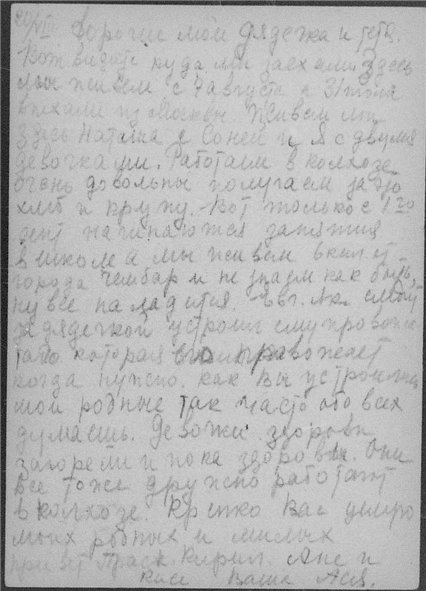 20/VIII Дорогие мои дядечка и тетя.
Вот видите куда мы заехали. Здесь
мы живем с 7 августа а 31 июля
выехали из Москвы. Живем мы
здесь Наташа с Соней и я с двумя
девочками. Работаем в колхозе
очень довольны получаем за это
хлеб и крупу. Вот только с 1го
сент начинаются занятия
в школе а мы живем в
города Чембар и не знаем как быть,
ну все наладится.
за дядечкой устроил ему
которая его провожает
когда нужно. Как Вы устроились
мои родные так часто обо всех
думаешь. Девочки здоровы
загорели и пока здоровы. Они
все тоже дружно работают
в колхозе. Крепко Вас целую
моих родных и милых
привет Кирил. и
Ваша Ася.